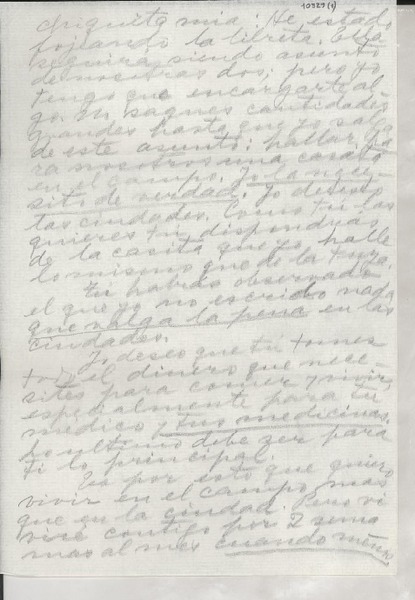 10929 (1)
Chiquita mia: He estado
hojeando la libreta. Ella
seguirá siendo asunto
de nosotras dos; pero yo
tengo que encargarte al-
go. No saques cantidades
grandes hasta que yo salga
de este asunto: hallar pa-
ra nosotros una casa
en el campo. Yo la nece-
sito de verdad. Yo detesto
las ciudades. Como tú las
quieres tú dispondrás
de la casita que yo halle
lo mismo que de la tuya.
Tú habrás observado
el que yo no escribo nada
que valga la pena en las
ciudades.
Yo deseo que tú tomes
el dinero que nece-
sites para comer y vivir,
especialmente para tu
médico y tus medicinas.
Lo ultimo debe ser para
ti lo principal.
Es por esto que quiero
vivir en el campo mas
que en la ciudad. Pero vi
viré contigo por 2 sema
nas al mes cuando menos